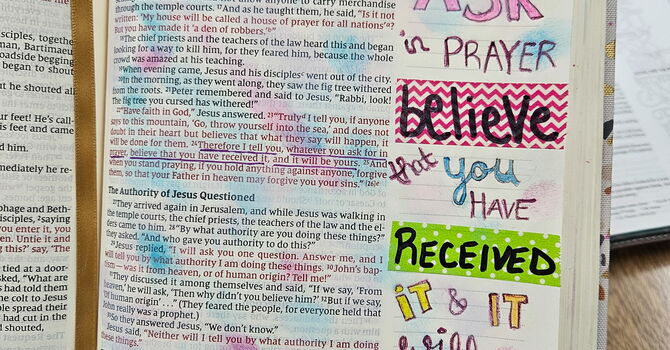 sciples, togethe
man, Bartimaeu
roadside begging
began to shout
but he shouted all
our feet! He's call-
is feet and came
ed him.
mediately he re-
phage and Beth-
disciples, saying
you enter it, you
en. Untie it and
his?' say, 'The
tied at a door-
sked, "What are
s had told them
he colt to Jesus
ple spread their
had cut in the
shouted,
anyone to carry merchandise
through the temple courts. 17And as he taught them, he said, "Is it not
written: 'My house will be called a house of prayer for all nations'?
But you have made it 'a den of robbers.'"
18The chief priests and the teachers of the law heard this and began
looking for a way to kill him, for they feared him, because the whole
crowd was amazed at his teaching.
19When evening came, Jesus and his disciples went out of the city.
20In the morning, as they went along, they saw the fig tree withered
from the roots. 21Peter remembered and said to Jesus, "Rabbi, look!
The fig tree you cursed has withered!"
22"Have faith in God," Jesus answered. 23"Truly I tell you, if anyone
says to this mountain, 'Go, throw yourself into the sea,' and does not
doubt in their heart but believes that what they say will happen, it
will be done for them. 24Therefore I tell you, whatever you ask for in
prayer, believe that you have received it, and it will be yours. 25And
when you stand praying, if you hold anything against anyone, forgive
them, so that your Father in heaven may forgive you your sins."
The Authority of Jesus Questioned
27They arrived again in Jerusalem, and while Jesus was walking in
the temple courts, the chief priests, the teachers of the law and the el-
ders came to him. 28"By what authority are you doing these things?"
they asked. "And who gave you authority to do this?"
29Jesus replied, "I will ask you one question. Answer me, and I
will tell you by what authority I am doing these things. 30John's bap-
tism—was it from heaven, or of human origin? Tell me!"
31They discussed it among themselves and said, "If we say, 'From
heaven,' he will ask, 'Then why didn't you believe him?' 32But if we say,
'Of human origin' . . ." (They feared the people, for everyone held that
John really was a prophet.)
33So they answered Jesus, "We don't know."
Jesus said, "Neither will I tell you by what authority I am doing
these things."
ASK
in PRAYER
believe
that you
HAVE
RECEIVED
iT & IT
will